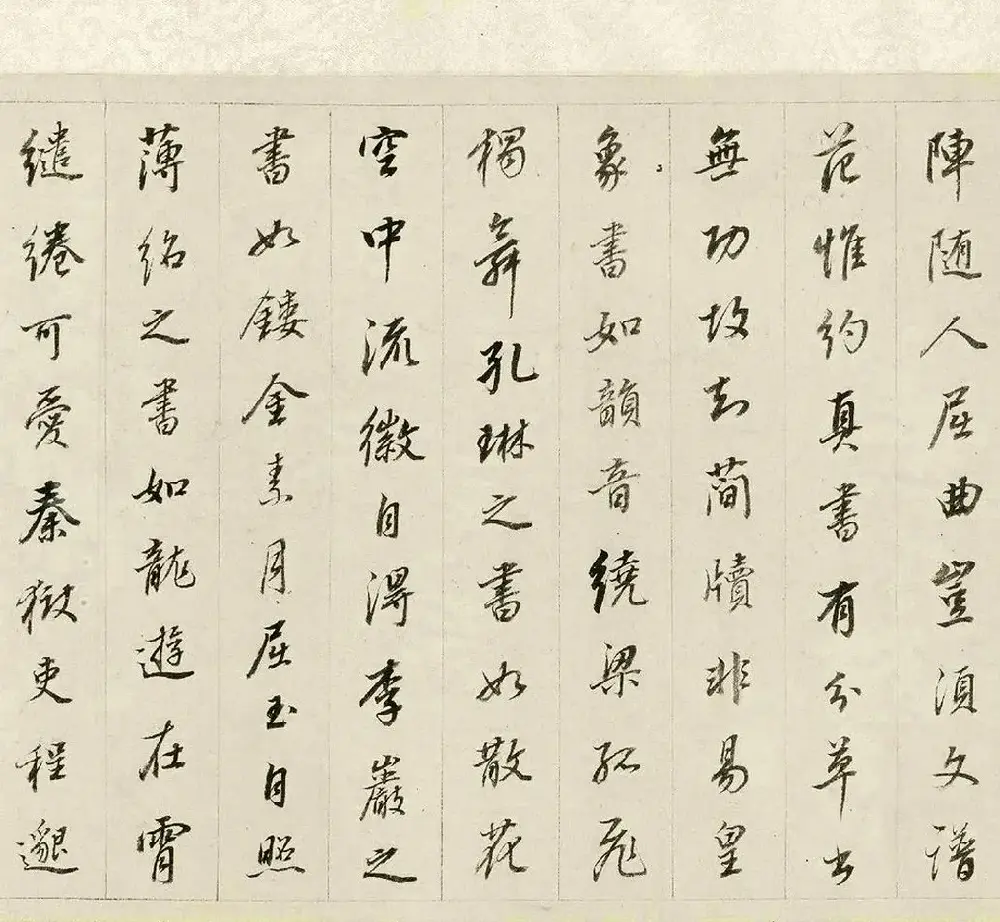 陣随人屈曲豈須文譜
范惟約真書有分草書
無功故知簡牘非易皇
象書如韻音繞梁孤飛
獨舞孔琳之書如散花
空中流徽自得李巖之
書如鏤金素月屈玉自照
薄紹之書如龍遊在霄
繾綣可愛秦獄吏程邈